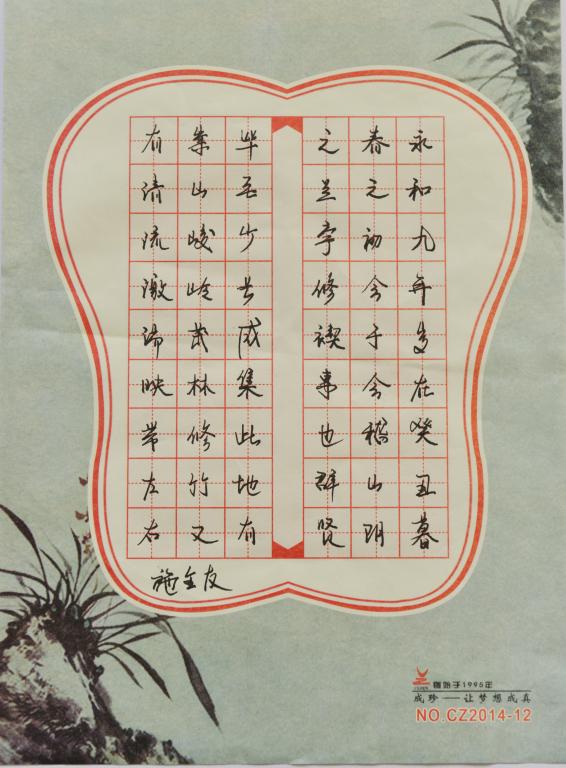 永和九年岁在癸丑暮
春之初会于会稽山阴
之兰亭修禊事也群贤
毕至少长咸集此地有
崇山峻岭茂林修竹又
有清流激湍映带左右
施全友
始于1995年
成珍——让梦想成真
NO.CZ2014-12